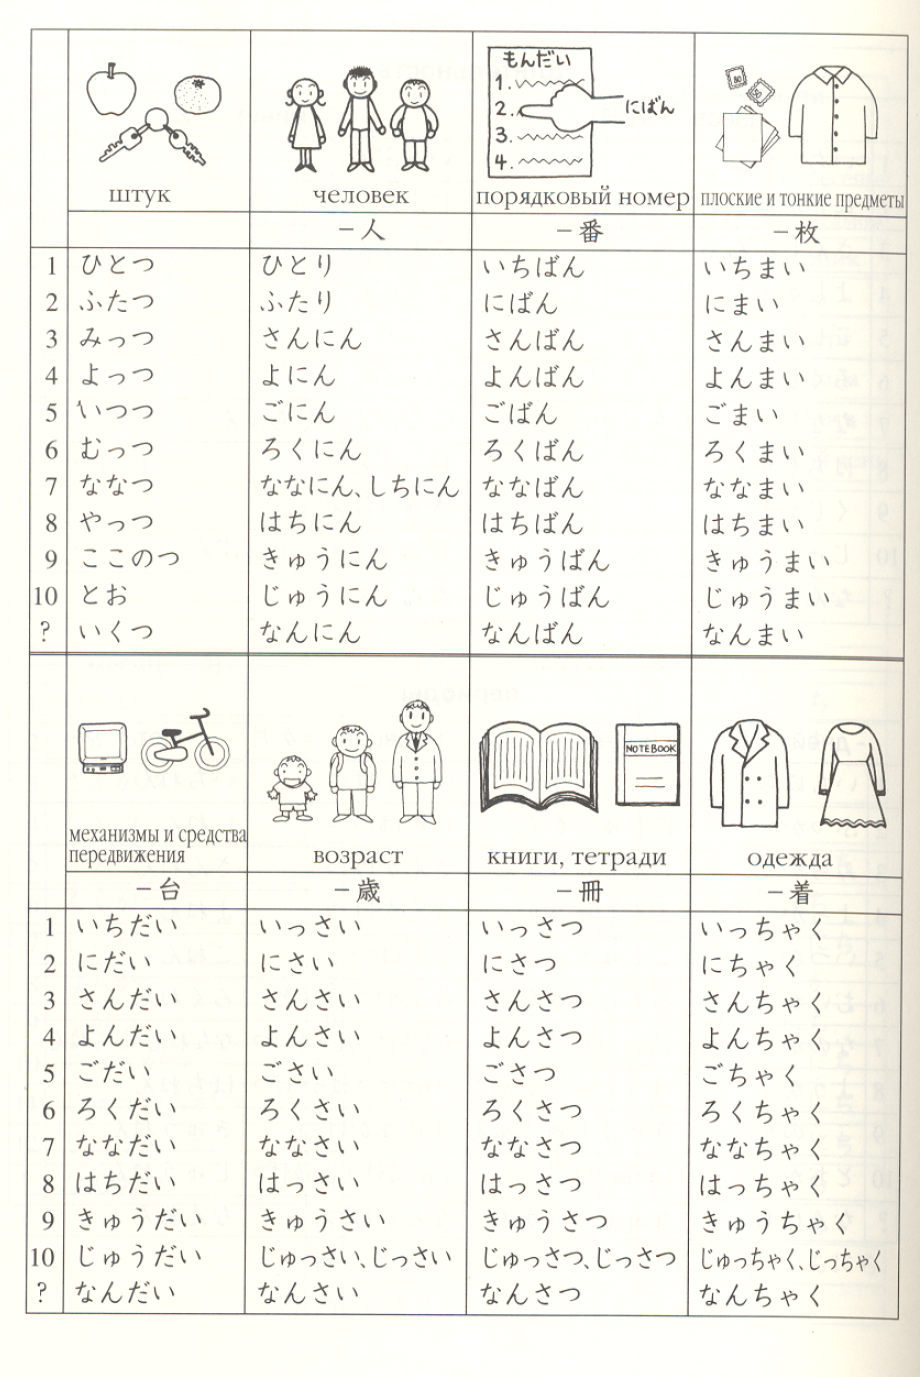 もんだい
1.
2.
3.
4.
にばん
80
штук человек порядковый номер плоские и тонкие предметы
－人 －番 －枚
1 ひとつ ひとり いちばん いちまい
2 ふたつ ふたり にばん にまい
3 みっつ さんにん さんばん さんまい
4 よっつ よにん よんばん よんまい
5 いつつ ごにん ごばん ごまい
6 むっつ ろくにん ろくばん ろくまい
7 ななつ ななにん、しちにん ななばん ななまい
8 やっつ はちにん はちばん はちまい
9 ここのつ きゅうにん きゅうばん きゅうまい
10 とお じゅうにん じゅうばん じゅうまい
? いくつ なんにん なんばん なんまい
NOTEBOOK
механизмы и средства
передвижения возраст книги, тетради одежда
－台 －歳 －冊 －着
1 いちだい いっさい いっさつ いっちゃく
2 にだい にさい にさつ にちゃく
3 さんだい さんさい さんさつ さんちゃく
4 よんだい よんさい よんさつ よんちゃく
5 ごだい ごさい ごさつ ごちゃく
6 ろくだい ろくさい ろくさつ ろくちゃく
7 ななだい ななさい ななさつ ななちゃく
8 はちだい はっさい はっさつ はっちゃく
9 きゅうだい きゅうさい きゅうさつ きゅうちゃく
10 じゅうだい じゅっさい、じっさい じゅっさつ、じっさつ じゅっちゃく、じっちゃく
? なんだい なんさい なんさつ なんちゃく